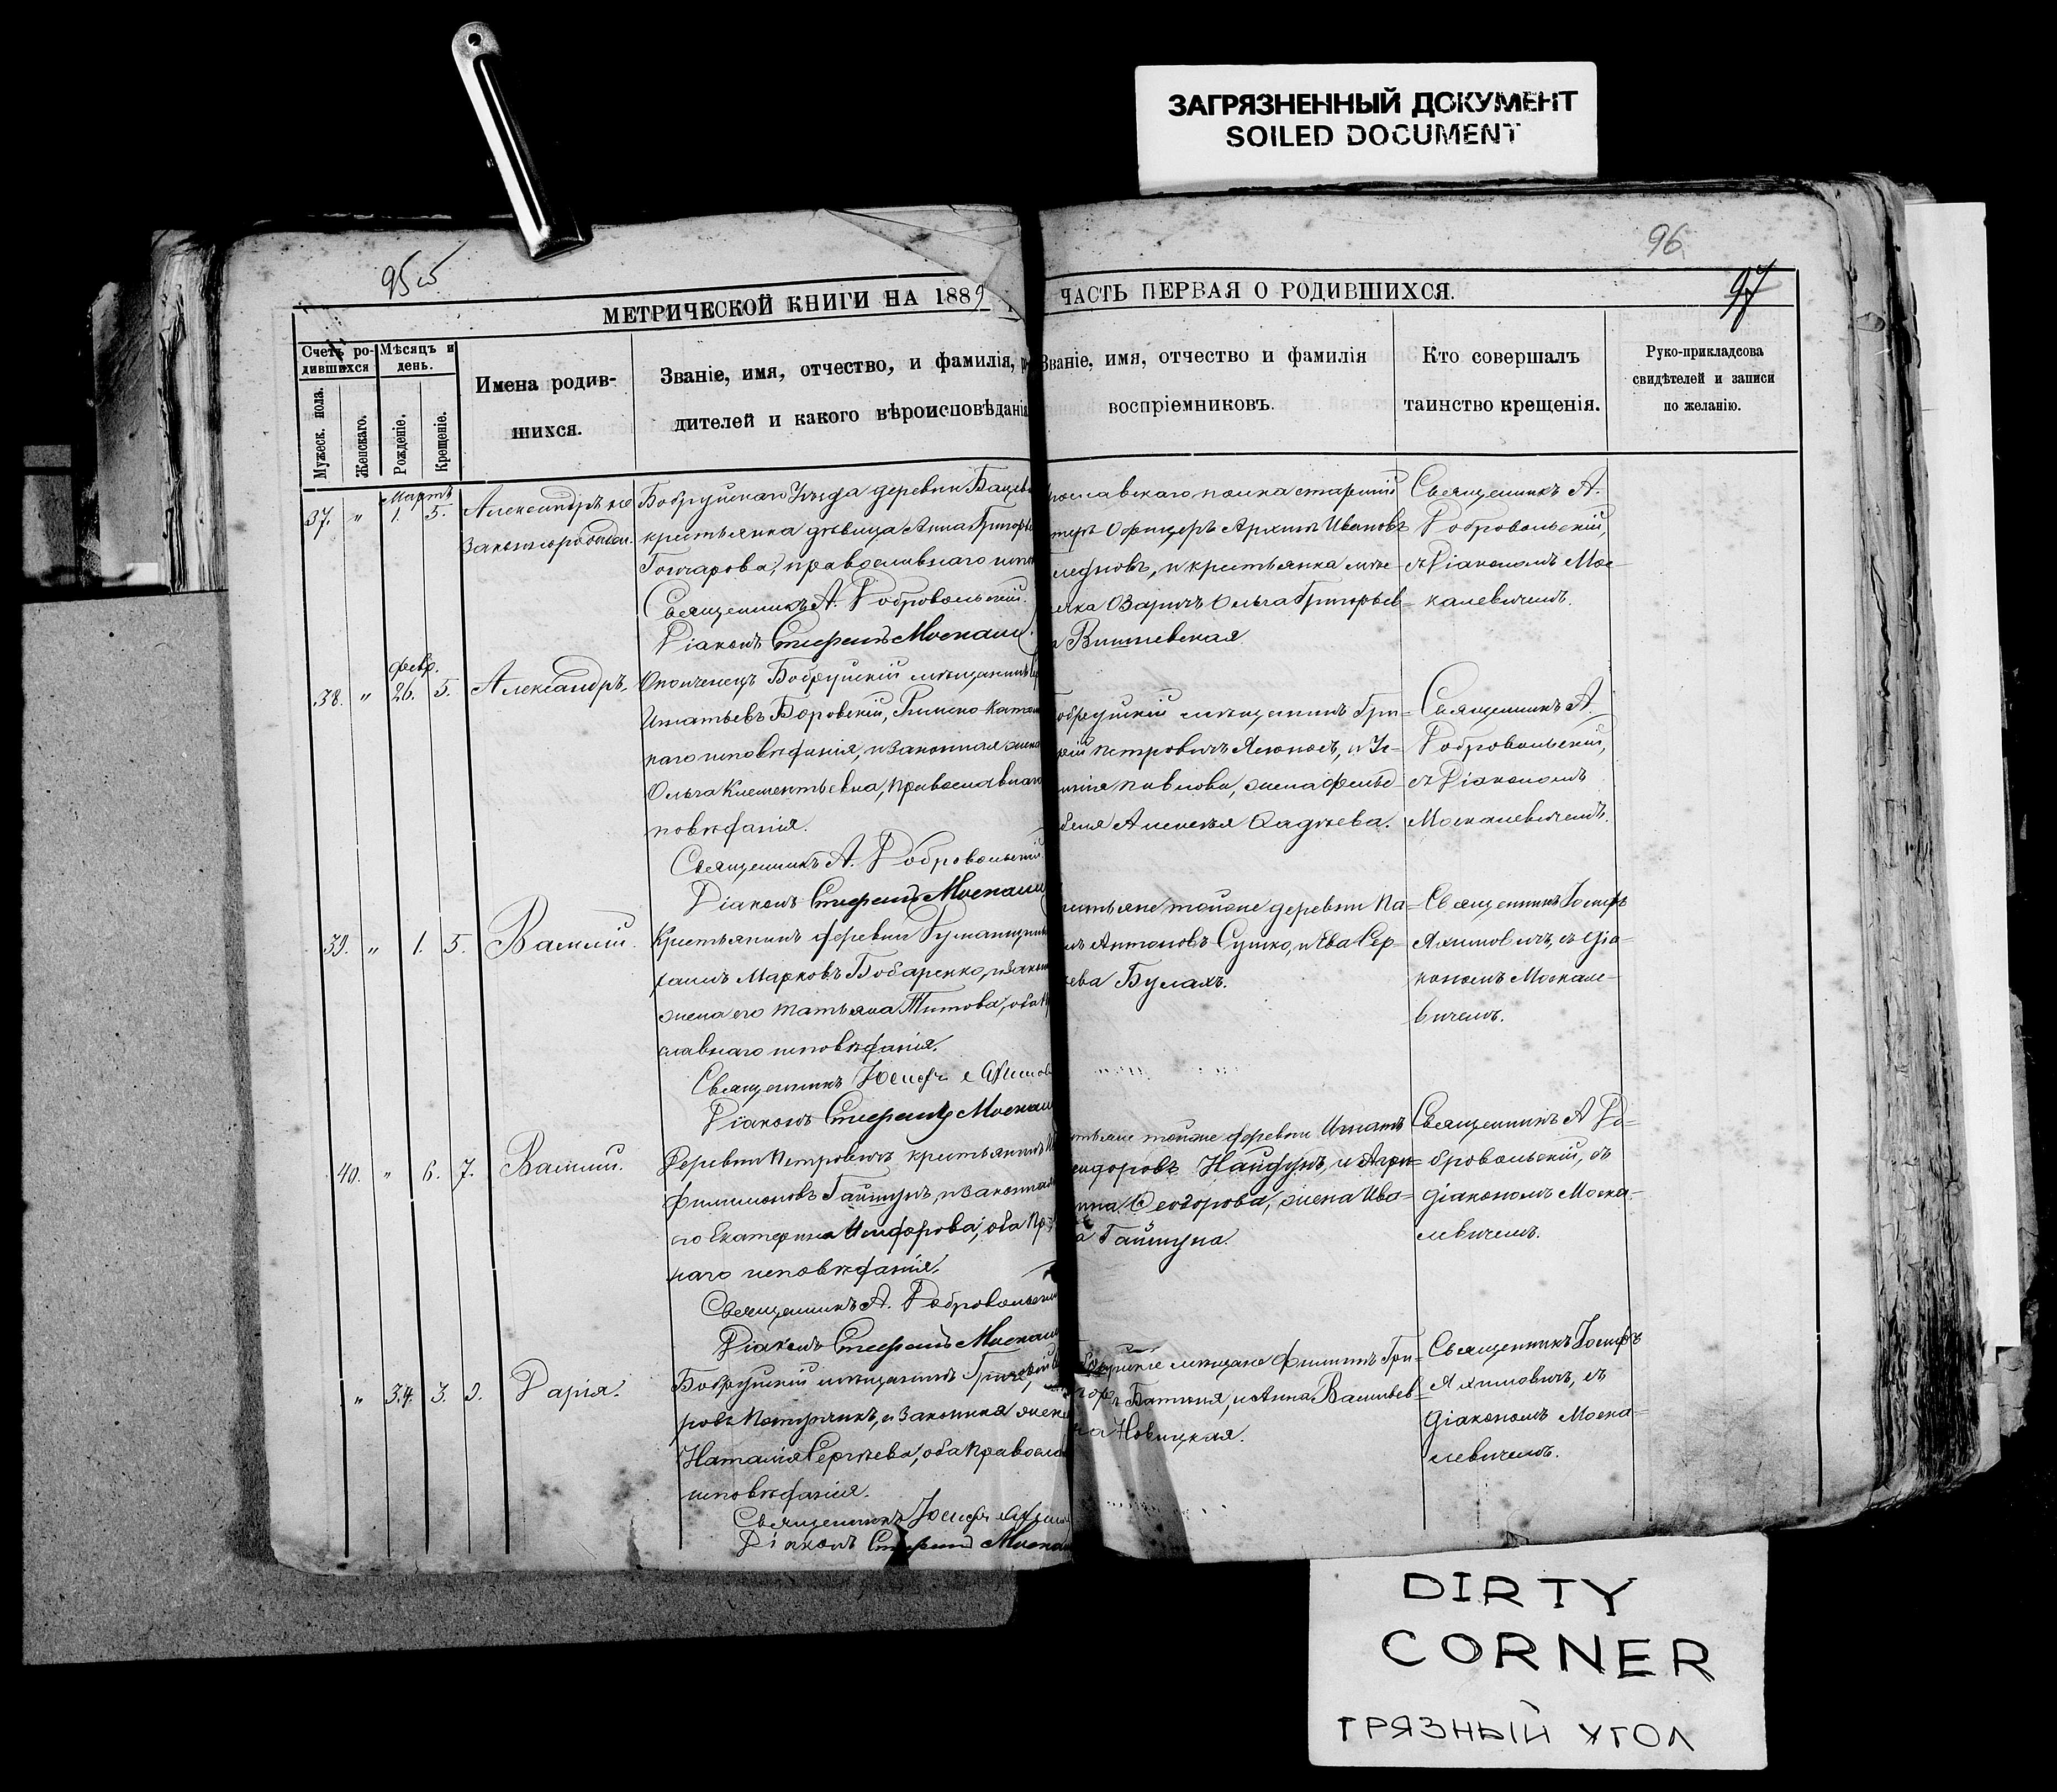 ЗАГРЯЗНЕННЫЙ ДОКУМЕНТ
SOILED DOCUMENT
95
96
97
МЕТРИЧЕСКОЙ КНИГИ НА 1889
ЧАСТЬ ПЕРВАЯ О РОДИВШИХСЯ.
Счетъ ро-
дившихся
Мѣсяцъ и
день.
Мужеск. пола.
Женскаго.
Рожденіе.
Крещеніе.
Имена родив-
шихся.
Званіе, имя, отчество, и фамилія, р
дителей и какого вѣроисповѣданія
Званіе, имя, отчество и фамилія
воспріемниковъ.
Кто совершалъ
таинство крещенія.
Руко-прикладсова
свидѣтелей и записи
по желанію.
Мартъ
37. " 1. 5. Александръ не
законнорожден.
Бобруйскаго Уѣзда деревни
крестьянка дѣвица Анна Григорье
Гончарова, православнаго
Священникъ А. Добровольскій.
Діаконъ Стефанъ Москале
рославскаго полка старшій
Офицеръ Архипъ Ивановъ
и крестьянка
Ольга Григорьев-
Вишневская
Священникъ А.
Добровольскій,
съ Діакономъ Мос-
калевичемъ.
февр.
38. " 26. 5. Александръ.
Ополченецъ Бобруйскій мѣщанинъ
Игнатьевъ Боровскій, Римско-Като
каго исповѣданія, и законная жена
Ольга Климентьевна, православнаго
повѣданія.
Священникъ А. Добровольскій.
Діаконъ Стефанъ Москале
обруйскій мѣщанинъ Гри-
Петровичъ
Павлова, жена фельд-
Алексѣя Фадѣева.
Священникъ А.
Добровольскій,
съ Діакономъ
Москалевичемъ.
39. " 1. 5. Василій.
Крестьянинъ деревни
Марковъ Бондаренко, и закон
жена его Татьяна Титова, оба
славнаго исповѣданія.
Священникъ Іосифъ Яхимов
Діаконъ Стефанъ Москале
стьяне тойже деревни Па-
Антоновъ Сушко, и Ева Сер-
ѣева Булахъ.
Священникъ Іосифъ
Яхимовичъ, съ діа-
кономъ Москале-
вичемъ.
40. " 6. 7. Василій.
Деревни Петровичъ крестьянинъ
Филимоновъ Гайшунъ, и законная
его Екатерина Исидорова, оба пр
наго исповѣданія.
Священникъ А. Добровольскій
Діаконъ Стефанъ Москале
стьяне тойже деревни Игнатъ
сидоровъ Найдунъ, и Агри-
пина Ѳеодорова, жена Ива-
а Гайшуна.
Священникъ А До-
бровольскій, съ
діакономъ Моска-
левичемъ.
" 34. 3. 9. Дарія.
Бобруйскій мѣщанинъ
ровъ и законная жена
Наталія Сергѣева, оба православ
исповѣданія.
Священникъ Іосифъ Яхим
Діаконъ Стефанъ Москале
мѣщане Филиппъ Гри-
гор. и Анна Васильев-
на Новицкая.
Священникъ Іосифъ
Яхимовичъ, съ
діакономъ Моска-
левичемъ.
DIRTY
CORNER
ГРЯЗНЫЙ УГОЛ